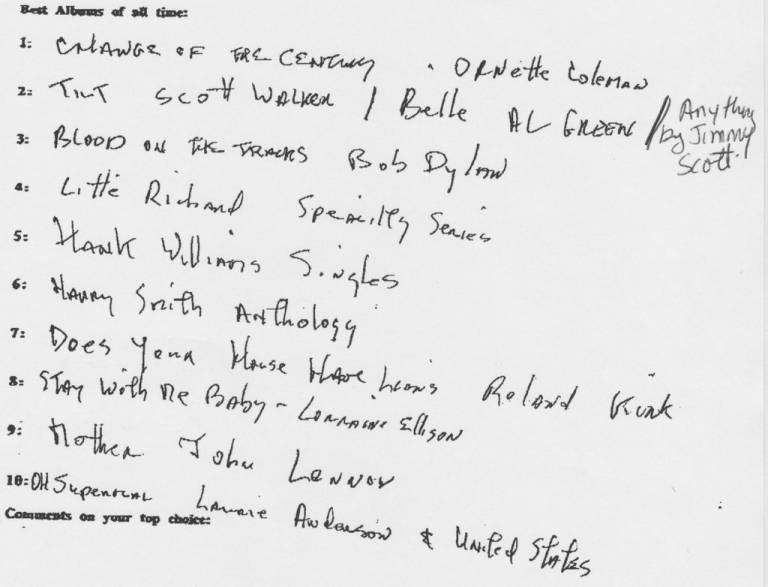 Best Albums of all time:
1: CHANGE OF THE CENTURY . ORNette Coleman
2: TILT SCOTT WALKER / Belle AL GREEN / Anything by Jimmy Scott.
3: BLOOD ON THE TRACKS Bob Dylan
4: Little Richard Specialty Series
5: Hank Williams Singles
6: Harry Smith Anthology
7: Does Your House Have Lions Roland Kirk
8: STAY With Me BABY - LORRAINE Ellison
9: Mother John Lennon
10: OH Superman Laurie Anderson & United States
Comments on your top choice: